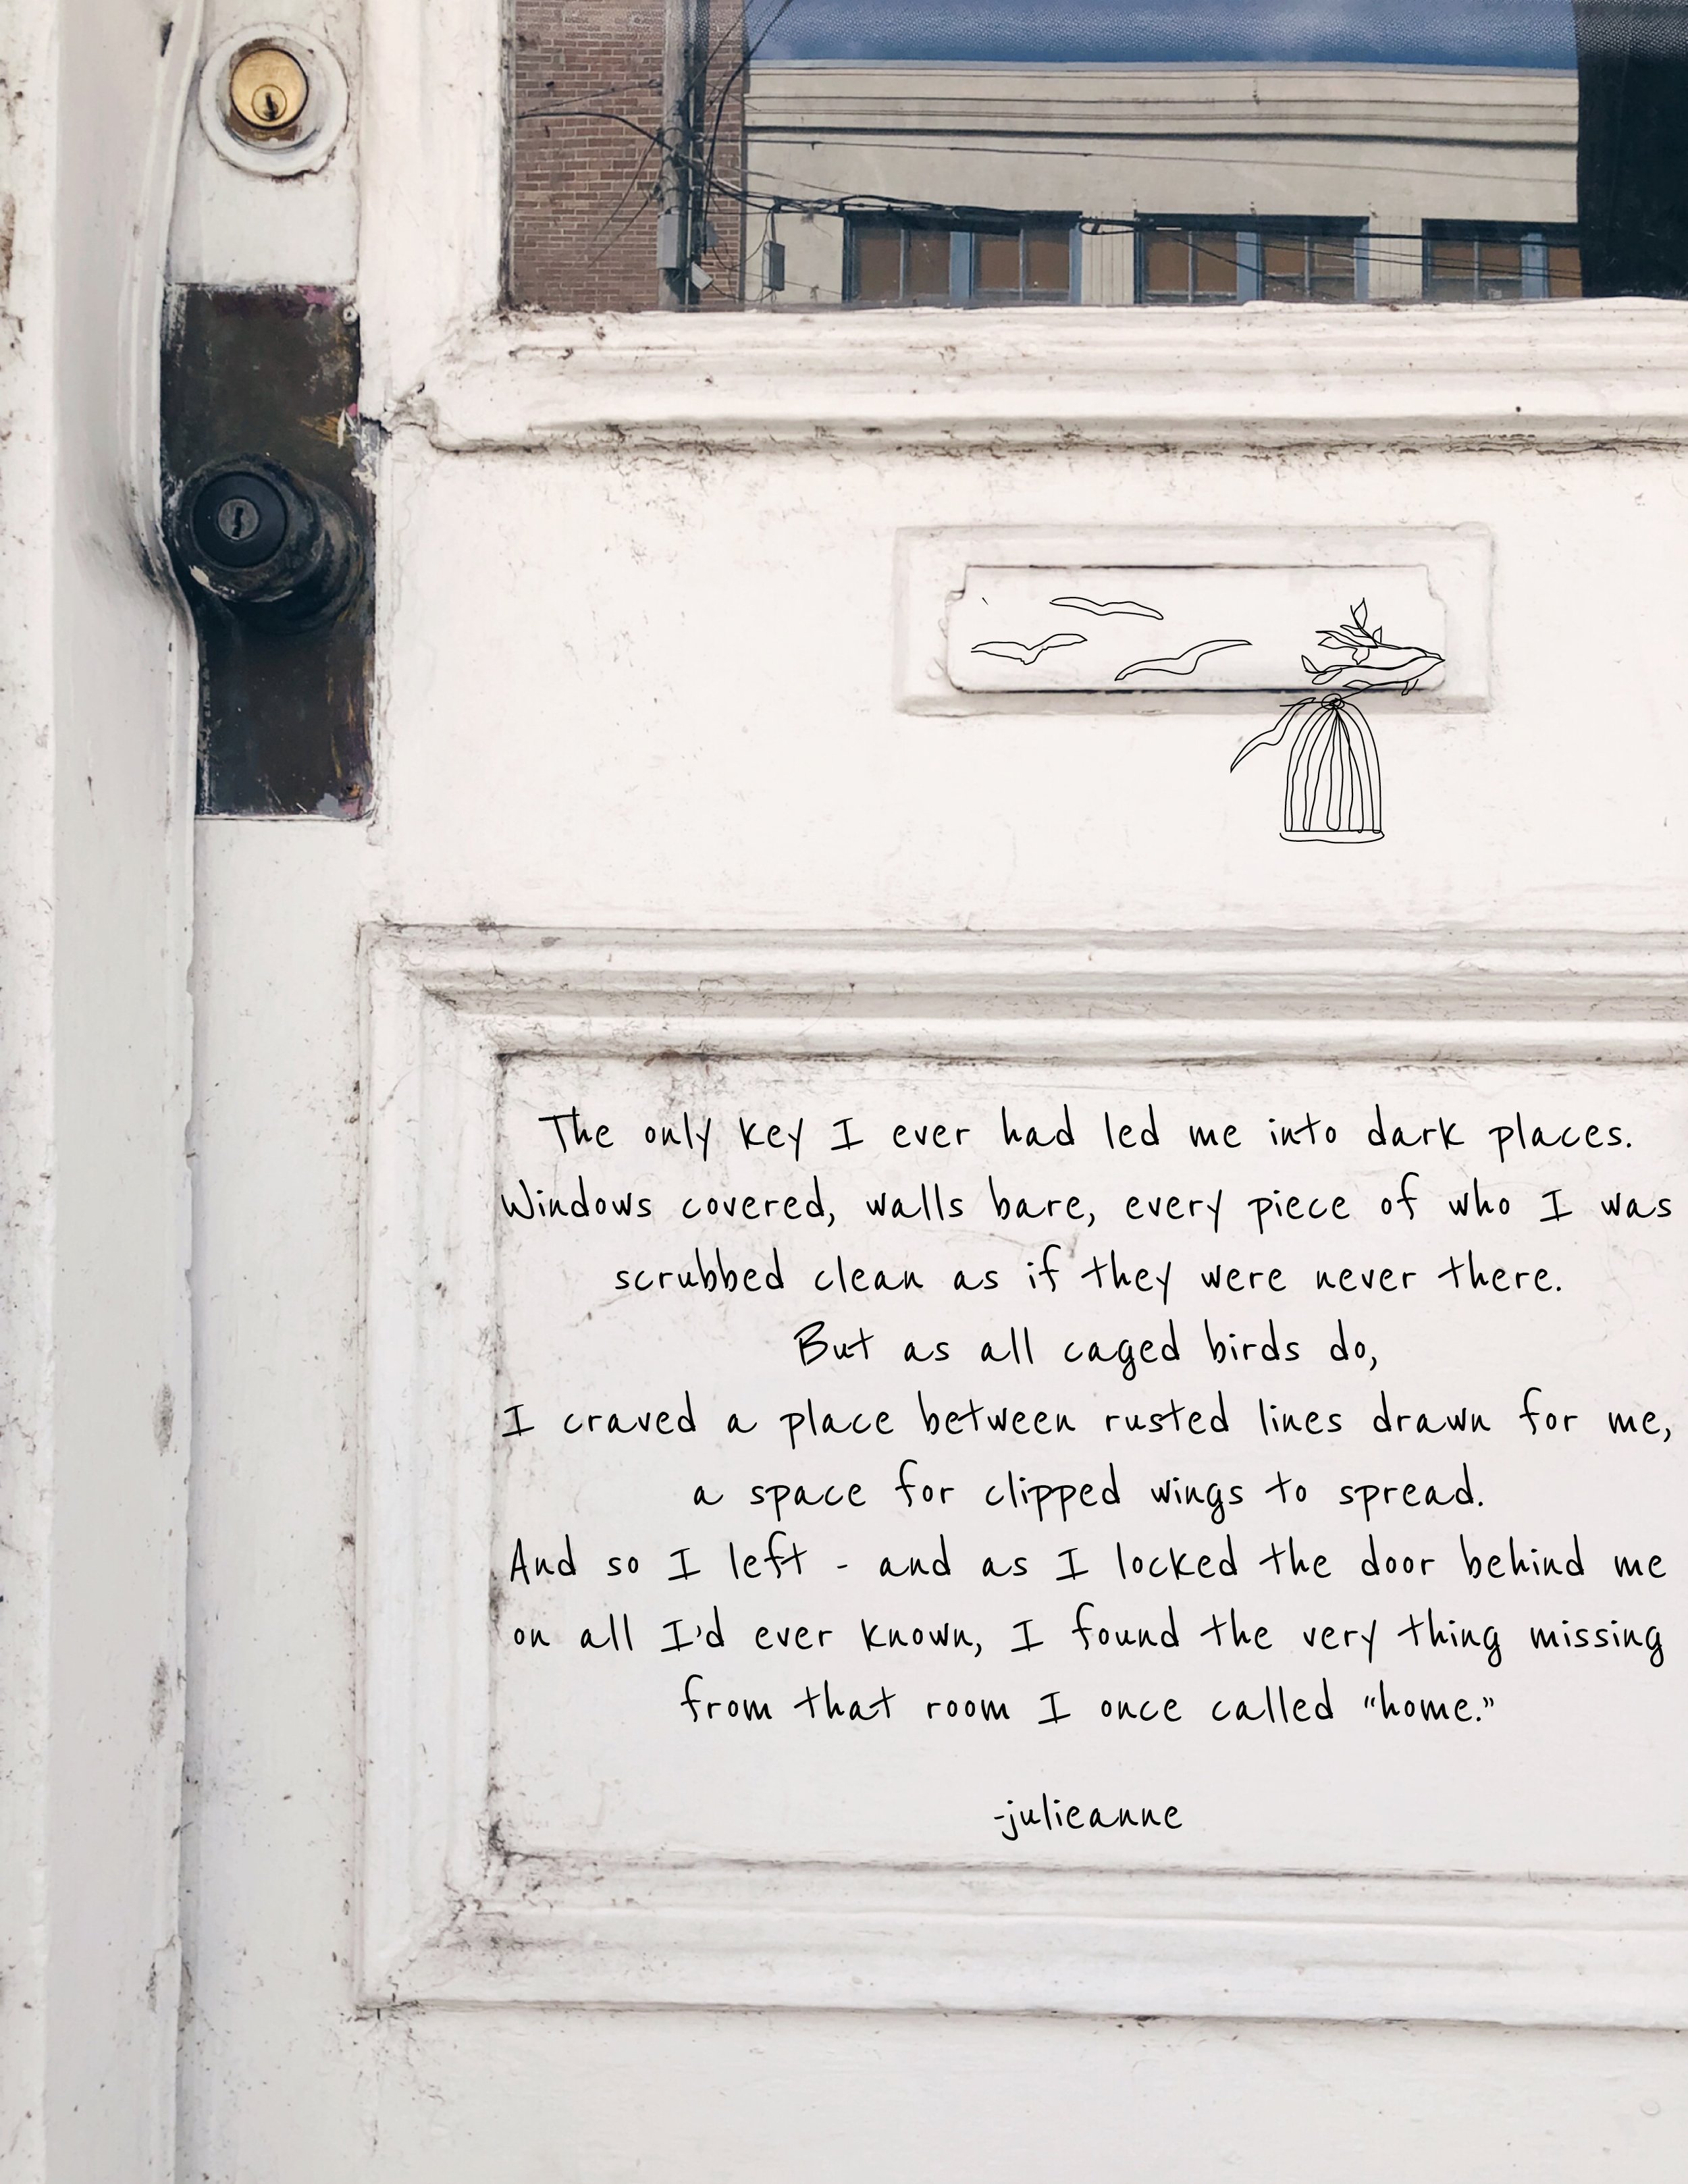 The only key I ever had led me into dark places.
Windows covered, walls bare, every piece of who I was
scrubbed clean as if they were never there.
But as all caged birds do,
I craved a place between rusted lines drawn for me,
a space for clipped wings to spread.
And so I left - and as I locked the door behind me
on all I'd ever known, I found the very thing missing
from that room I once called “home.”
-julieanne